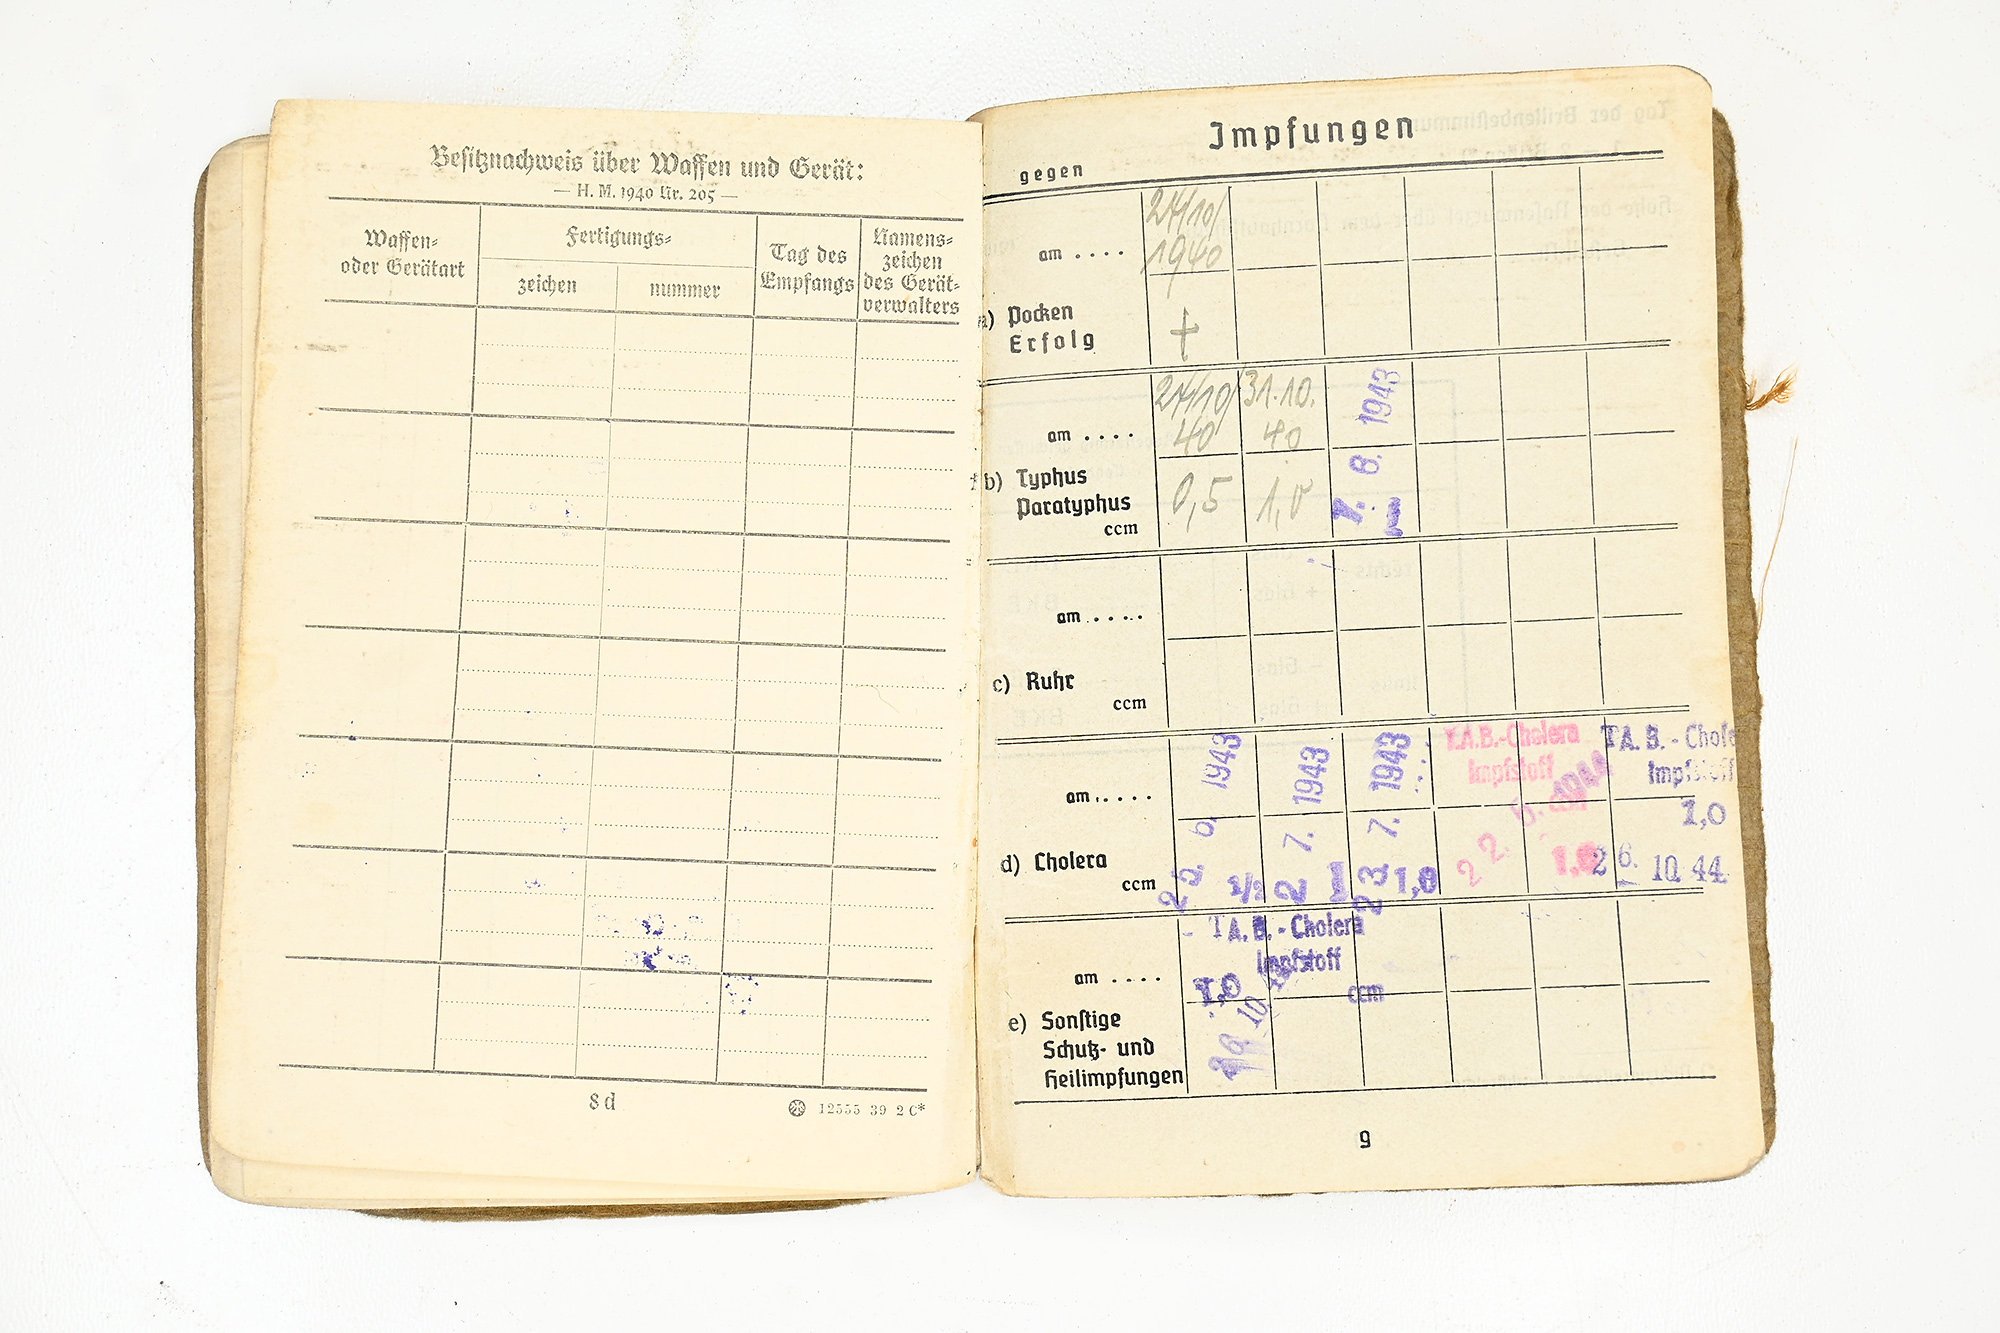 Besitznachweis über Waffen und Gerät:
— H. M. 1940 Nr. 205 —
Waffen-
oder Gerätart
Fertigungs-
zeichen
nummer
Tag des
Empfangs
Namens-
zeichen
des Gerät-
verwalters
8 d
12555 39 2 C*
Impfungen
gegen
am . . . .
24/10/
1940
a) Pocken
Erfolg
+
am . . . .
24/10/
40
31.10.
40
7. 8. 1943
b) Typhus
Paratyphus
ccm
0,5
1,0
1
am . . . .
c) Ruhr
ccm
am . . . .
25. 6. 1943
2 7. 1943
23 7. 1943
T.A.B.-Cholera
Impfstoff
1944
T A. B. - Chole
Impfstoff
1,0
d) Cholera
ccm
1/2
1
1,0
22.
1.0
26. 10. 44.
T A. B. - Cholera
Impfstoff
am . . . .
1,0
ccm
10.
e) Sonstige
Schutz- und
Heilimpfungen
9